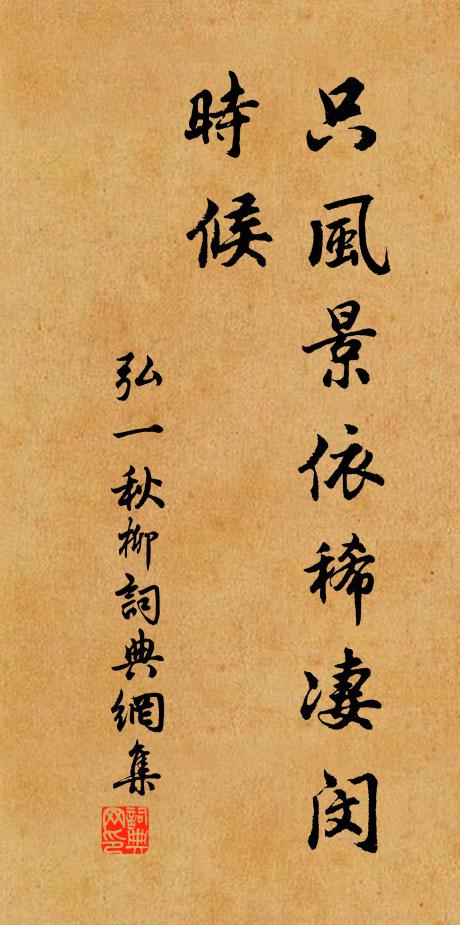 只風景依稀淒閔
時候
弘一秋柳詞典網集
詞典網印